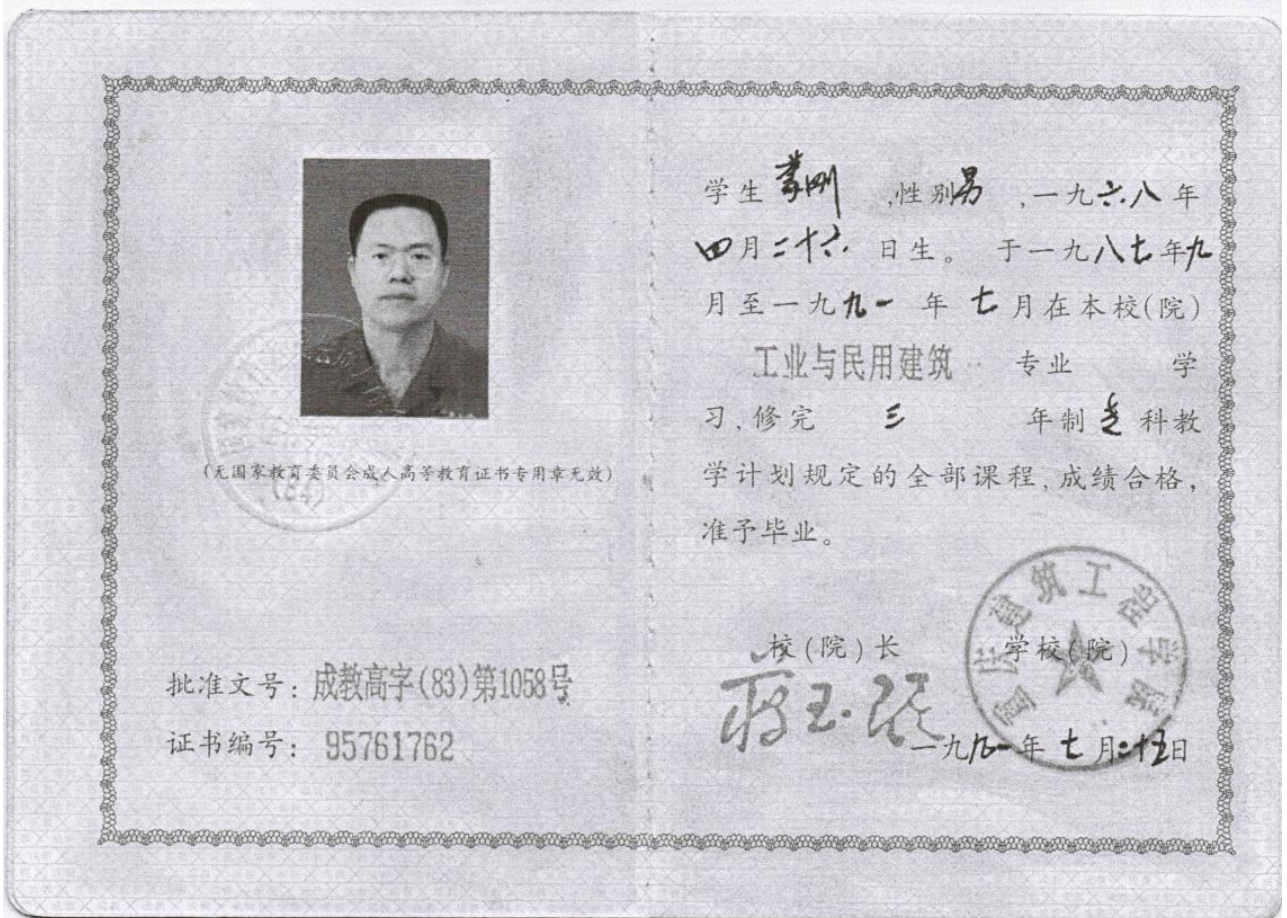 (无国家教育委员会成人高等教育证书专用章无效)
批准文号: 成教高字(83)第1058号
证书编号: 95761762
学生 刚 ,性别男 ,一九六八年
四月二十六 日生。 于一九八七年九
月至一九九一 年 七月在本校(院)
工业与民用建筑 专业 学
习,修完 三 年制专科教
学计划规定的全部课程,成绩合格,
准予毕业。
校(院)长 学校(院)
重庆建筑工程学院
一九九一年 七月二十五日